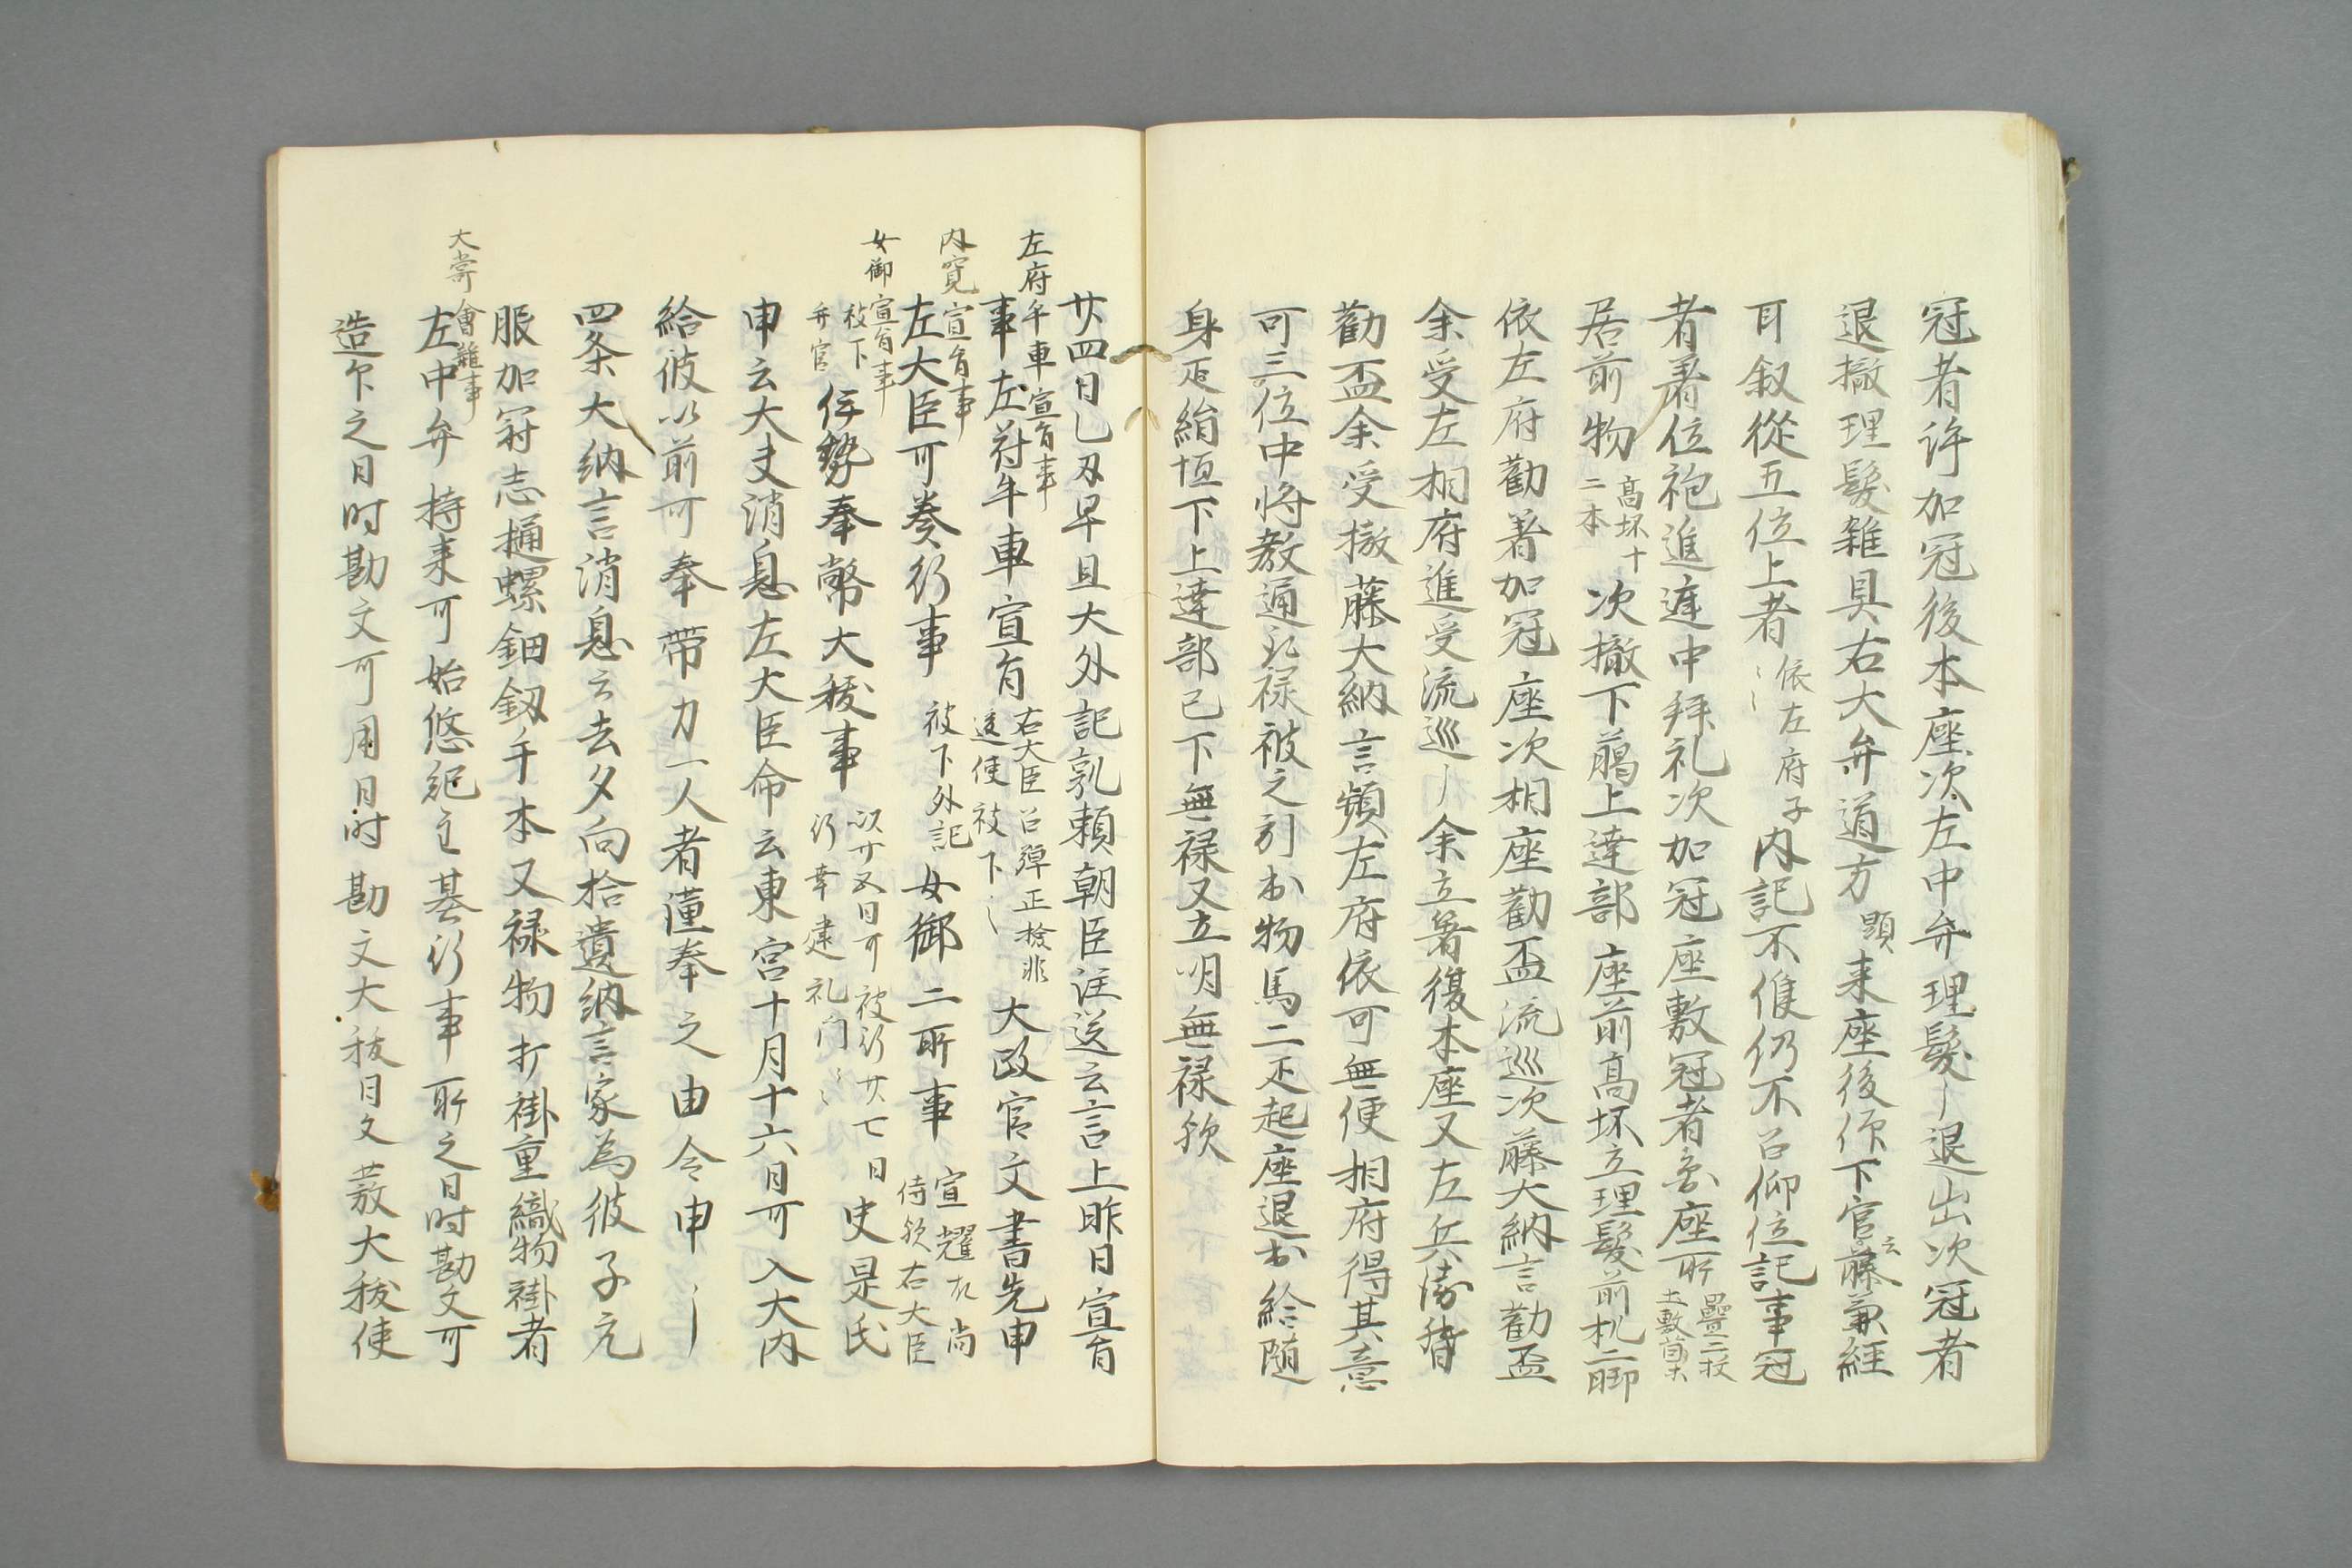 冠者許加冠後本座次左中弁理髪〻退出次冠者
退撤理髪雑具右大弁道方顕来座後作下官云藤兼経
可叙従五位上者依左府子〻〻内記不候仍不召仰位記事冠
者着位袍進庭中拝礼次加冠座敷冠者座所畳二枚土敷茵等
居前物高坏十二本次撤下臈上達部座前高坏立理髪前机二脚
依左府勧著加冠座次相座勧盃流巡次藤大納言勧盃
余受左相府進受流巡〻余立著復本座又左兵衛督
勧盃余受撤藤大納言頻左府依可無便相府得其意
可三位中将教通取禄被之引出物馬二疋起座退出給随
身疋絹垣下上達部已下無禄又立明無禄歟
廿四日乙丑早旦大外記敦頼朝臣注送云言上昨日宣旨
左府牛車宣旨事
事左府牛車宣旨右大臣召弾正検非違使被下〻大政官文書先申
内覧宣旨事
左大臣可奏行事被下外記女御二所事宣耀尤尚侍歟右大臣
女御宣旨事
被下弁官伊勢奉幣大祓事以廿五日可被行廿七日行幸建礼門〻〻史是氏
申云大夫消息左大臣命云東宮十月十六日可入大内
給彼以前可奉帯刀一人者謹奉之由令申〻
四条大納言消息云去夕向拾遺納言家為彼子元
服加冠志樋螺鈿釼手本又禄物打褂重織物褂者
大嘗會雜事
左中弁持来可始悠紀主基行事所之日時勘文可
造下之日時勘文可用日時勘文大祓日文発大祓使